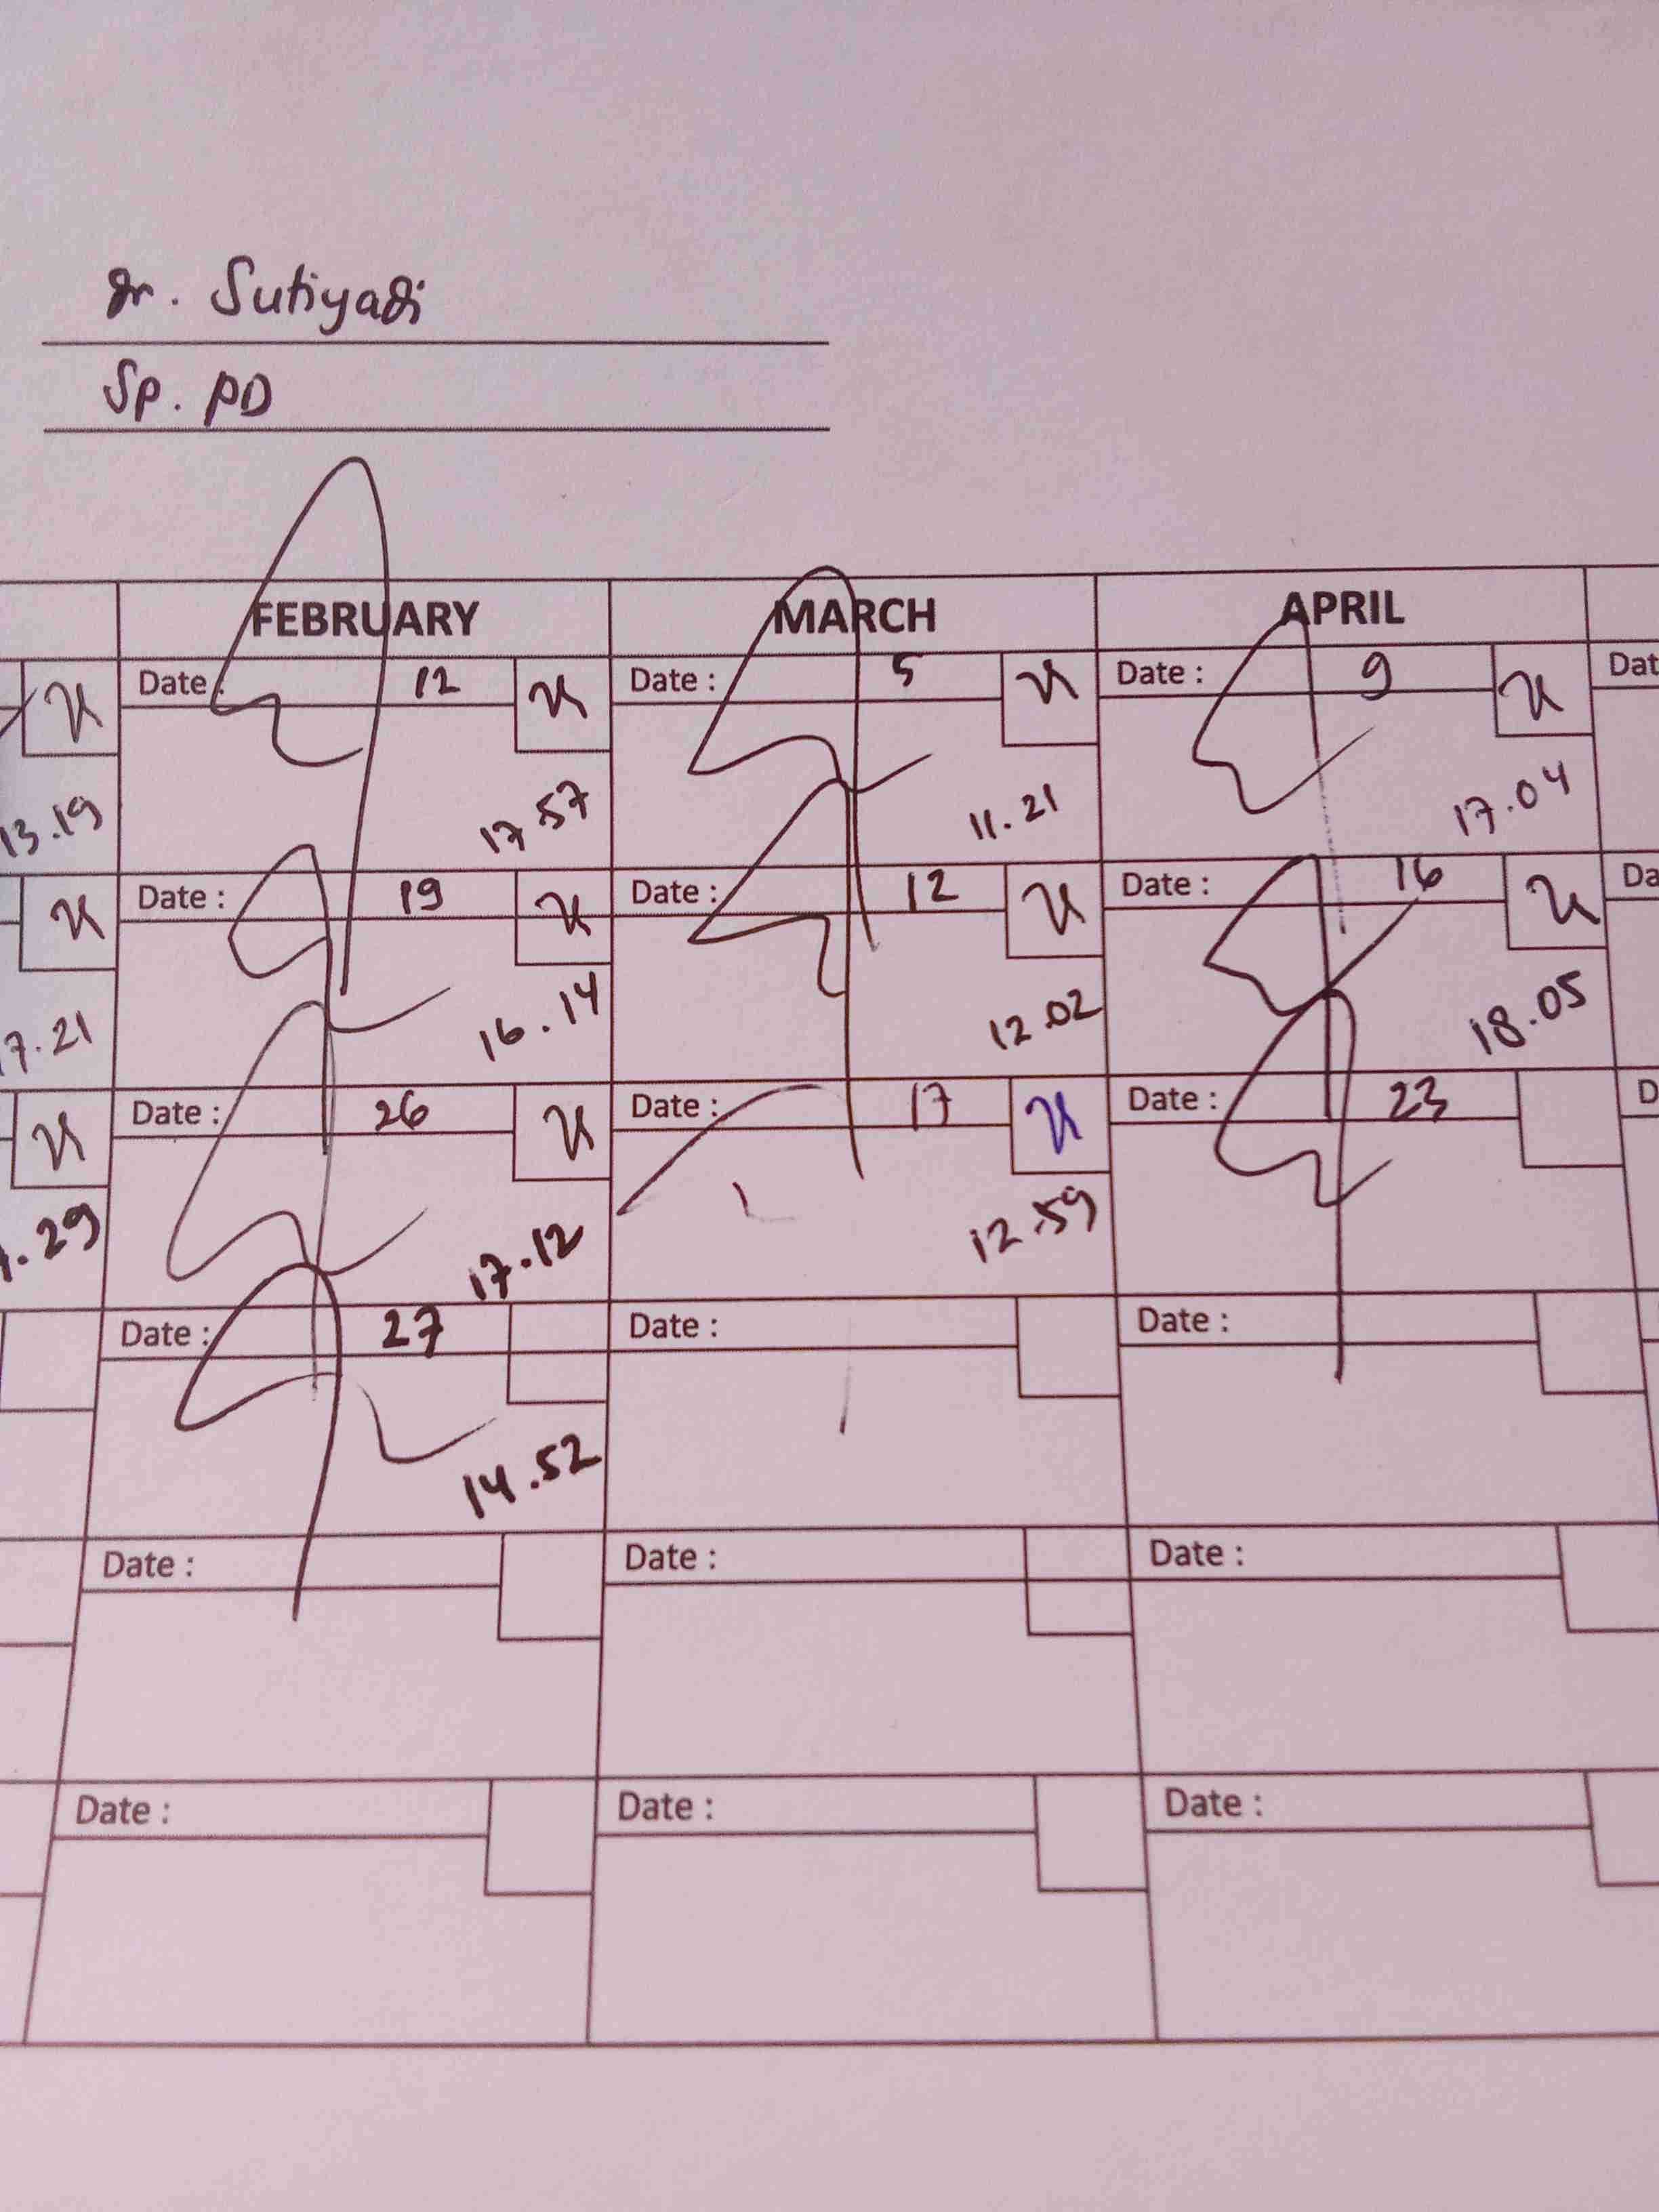 dr. Sutiyadi
Sp. PD
FEBRUARY MARCH APRIL
Date : 12 Date : 5 Date : 9 Dat
13.19 17.57 11.21 17.04
Date : 19 Date : 12 Date : 16 Da
7.21 16.14 12.02 18.05
Date : 26 Date : 17 Date : 23 D
.29 17.12 12.59
Date : 27 Date : Date :
14.52
Date : Date : Date :
Date : Date : Date :